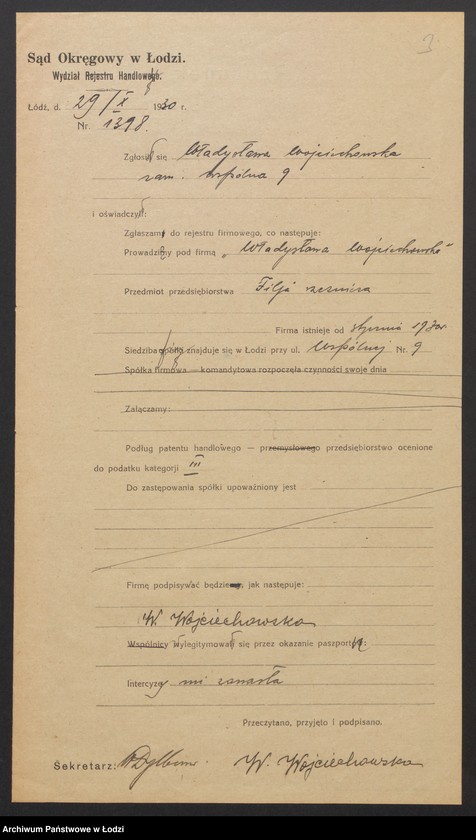 3.
Sąd Okręgowy w Łodzi.
Wydział Rejestru Handlowego.
Łódź, d. 29/X 1930 r.
Nr. 1398.
Zgłosił się Władysława Wojciechowska
zam. Wspólna 9
i oświadczył:
Zgłaszamy do rejestru firmowego, co następuje:
Prowadzimy pod firmą „Władysława Wojciechowska"
Przedmiot przedsiębiorstwa Filja rzeźnicza
Firma istnieje od stycznia 1930r
Siedziba spółki znajduje się w Łodzi przy ul. Wspólnej Nr. 9
Spółka firmowa — komandytowa rozpoczęła czynności swoje dnia
Załączamy:
Podług patentu handlowego — przemysłowego przedsiębiorstwo ocenione
do podatku kategorji III
Do zastępowania spółki upoważniony jest
Firmę podpisywać będzie jak następuje:
W. Wojciechowska
Wspólnicy wylegitymowali się przez okazanie paszportu:
Intercyzy nie zawarła
Przeczytano, przyjęto i podpisano.
Sekretarz: W. Wojciechowska
Archiwum Państwowe w Łodzi